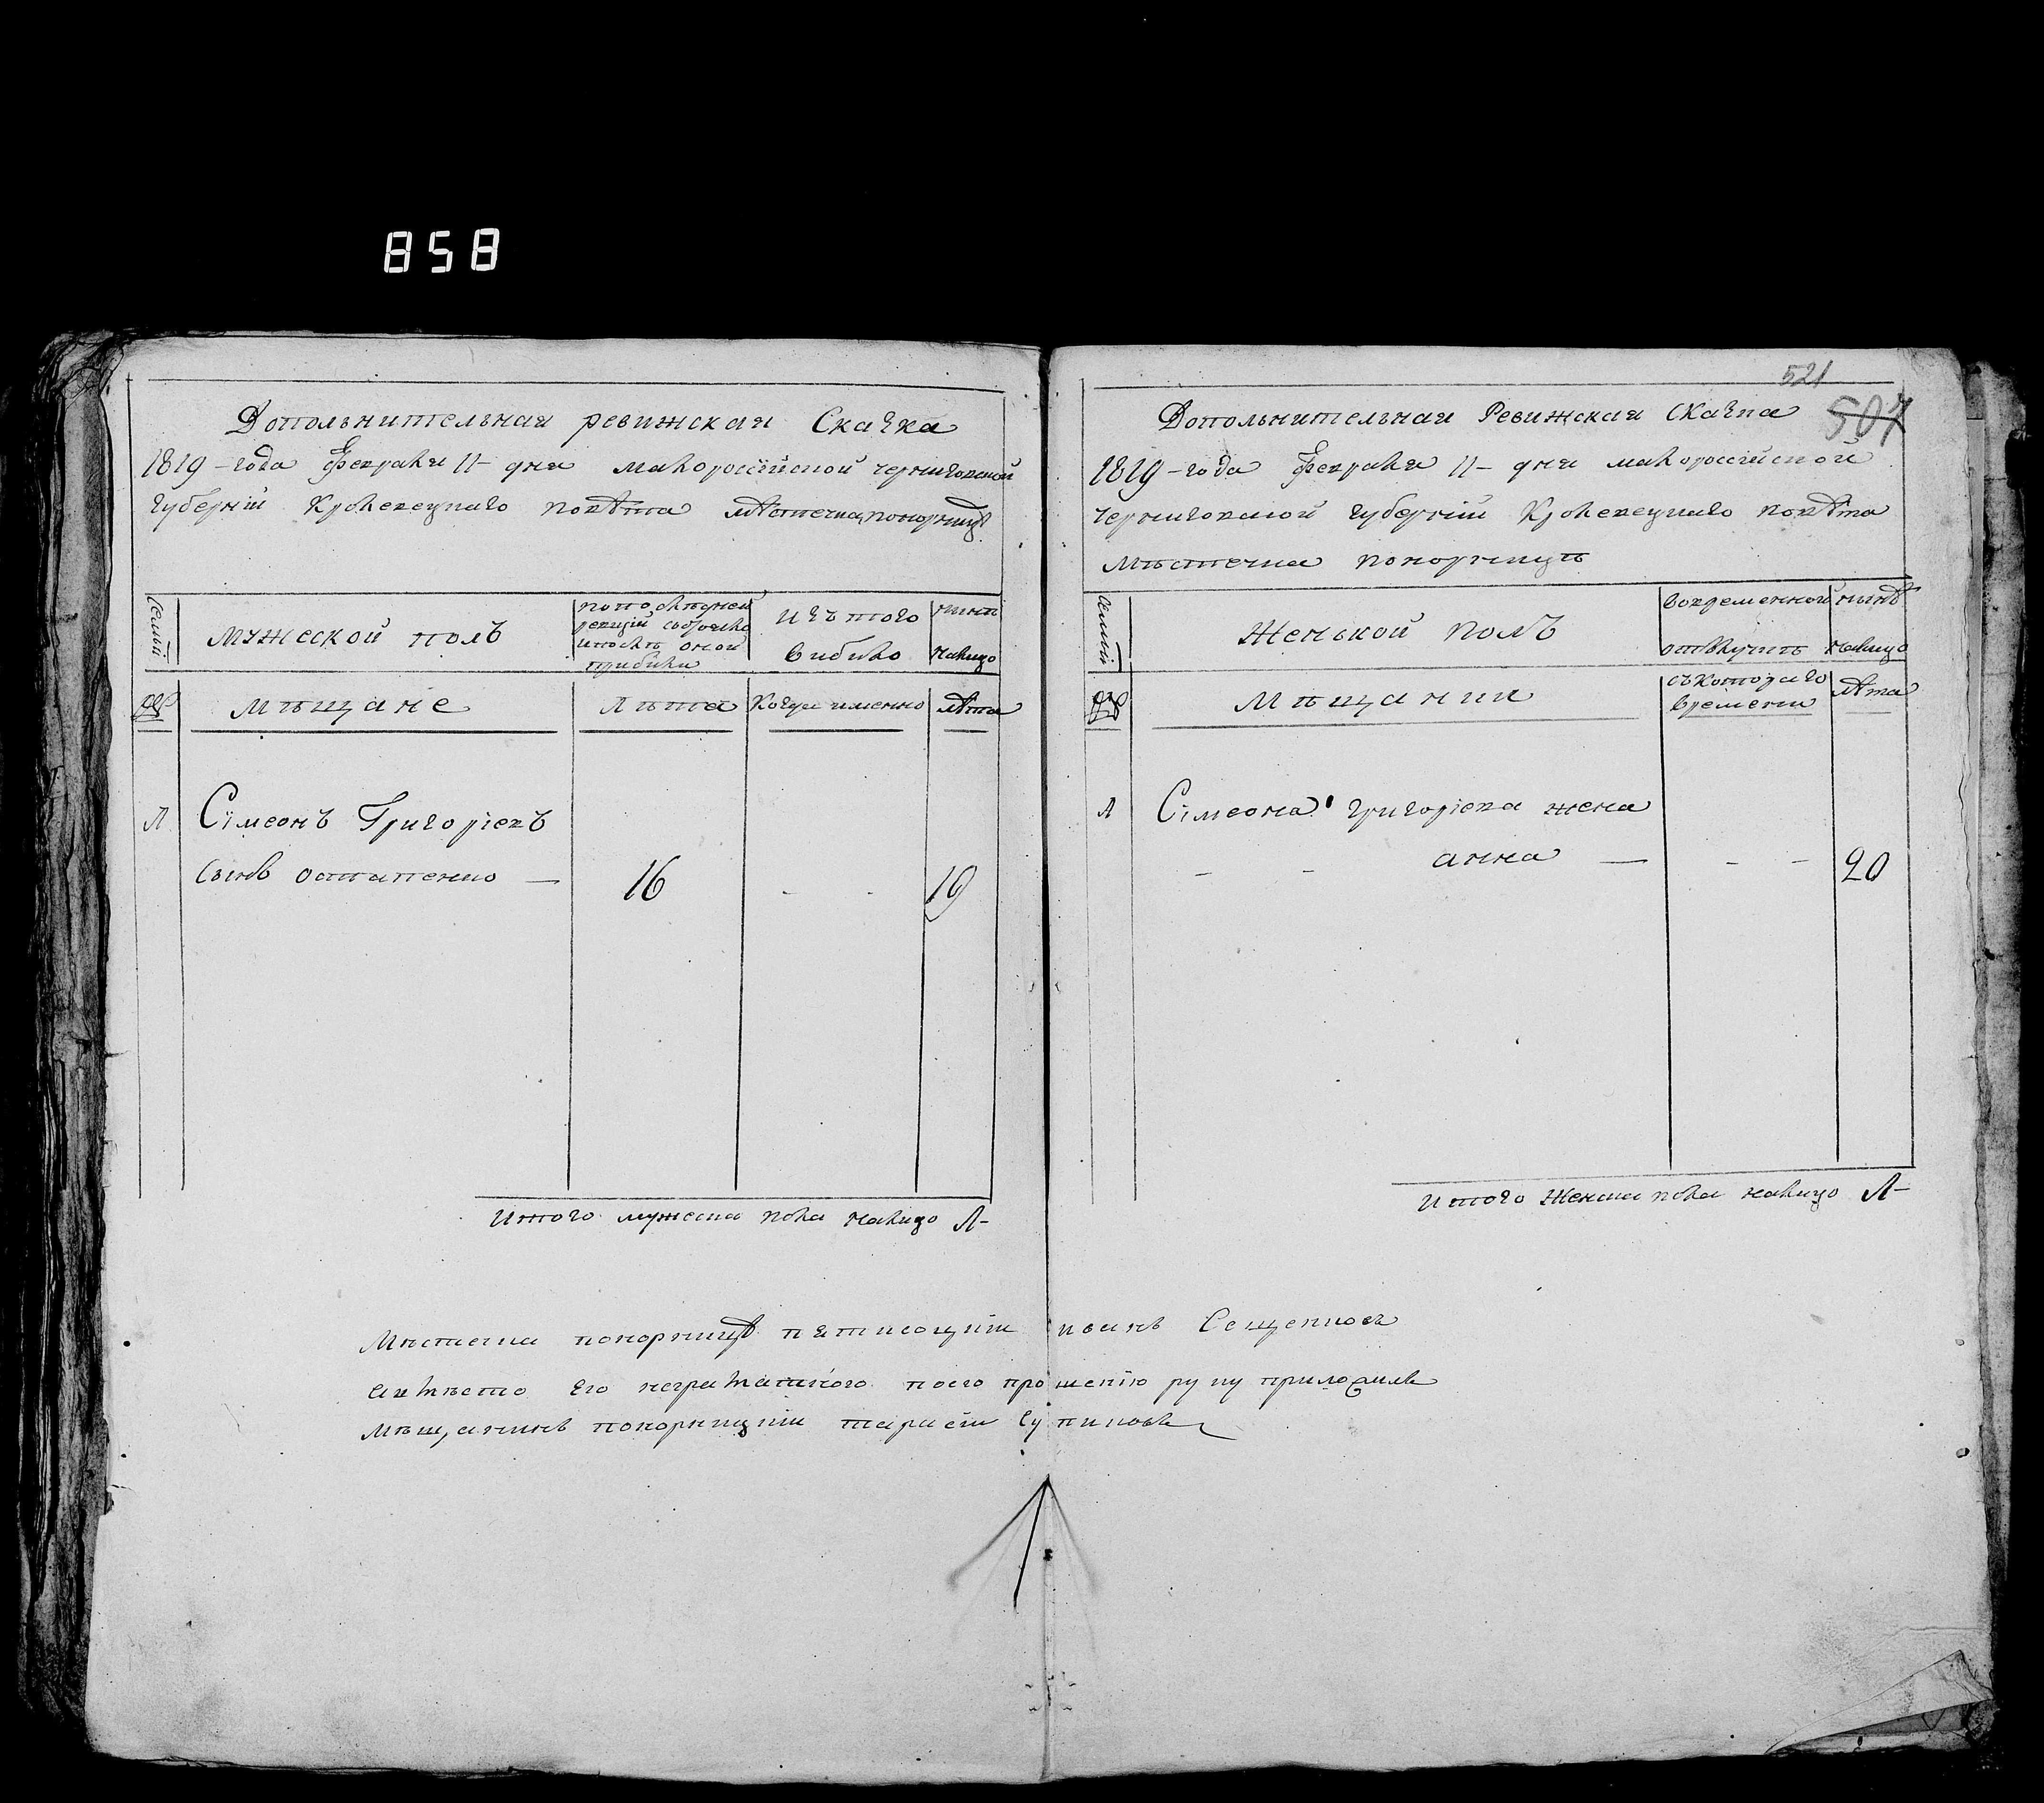 858
Допольнительная ревижская Скаска
1819-года февраля 11-дня малороссійской черниговской
губерніи Кролевецкаго повѣта мѣстечка понорницѣ
семьи
мужеской полъ
по последней
ревизіи состояло
и послѣ оной
прибили
изъ того
вибило
нынѣ
налицо
мѣщане
Лѣта
Когда именно
лѣта
1
Сімеонъ Григоріевъ
синъ остапенко —
16
19
Итого мужеска пола налицо 1-
521
507
Допольнительная Ревижская Скаска
1819-года февраля 11-дня малороссійской
черниговской губерніи Кролевецкаго повѣта
мѣстечка понорницѣ
семьи
Женьской полъ
вовременной
отлучкѣ
нынѣ
налицо
Мѣщанки
съкотораго
времени
лѣта
1
Сімеона григоріева жена
- - анна — - - 20
Итого женска пола налицо 1-
Мѣстечка понорницѣ пятисоцкій иванъ Сещенковъ
авмѣсто его неграматного поего прошенію руку приложилъ
мѣщанинъ понорницкій тарасій